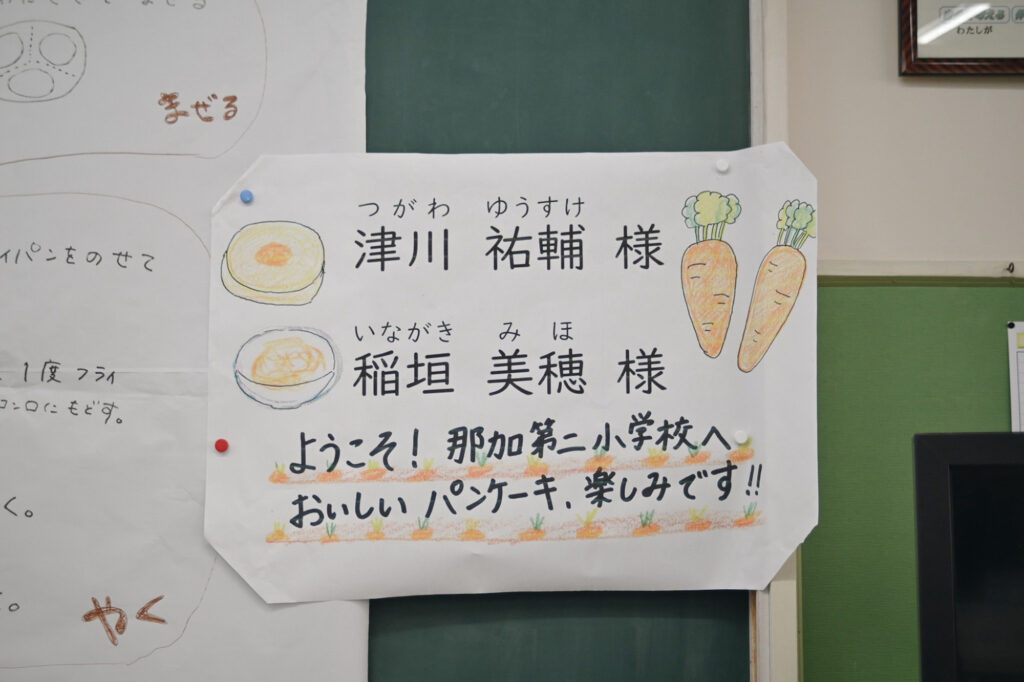 まぜる
イパンをのせて
1度フライ
コンロにもどす。
く。
やく
つがわ ゆうすけ
津川 祐輔 様
いながき みほ
稲垣 美穂 様
ようこそ! 那加第二小学校へ
おいしいパンケーキ、楽しみです!!
わたしが